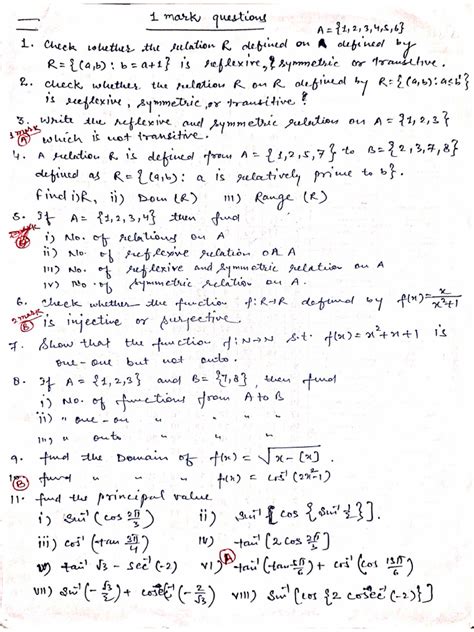 1 mark questions
A = {1,2,3,4,5,6}
1. Check whether the relation R defined on A defined by
R = {(a,b) : b = a+1} is reflexive, symmetric or transitive.
2. check whether the relation R on R defined by R = {(a,b): a≤b³}
is reflexive, symmetric, or transitive?
3. Write the reflexive and symmetric relation on A = {1,2,3}
1 mark
A which is not transitive.
4. A relation R is defined from A = {1,2,5,7} to B = {2,3,7,8}
defined as R = {(a,b) : a is relatively prime to b}.
Find i) R, ii) Dom (R) iii) Range (R)
5. If A = {1,2,3,4} then find
i) No. of relations on A
ii) No. of reflexive relation on A
iii) No. of reflexive and symmetric relation on A
iv) No. of symmetric relation on A.
6. Check whether the function f: R→R defined by f(x) = x/(x²+1)
B is injective or surjective.
7. Show that the function f: N→N s.t. f(x) = x²+x+1 is
one-one but not onto.
8. If A = {1,2,3} and B = {7,8}, then find
i) No. of functions from A to B
ii) " one-on "
iii) " onto "
9. find the Domain of f(x) = √(x - [x]).
10. find " " " f(x) = cos⁻¹(2x²-1)
B
11. find the principal value
i) sin⁻¹(cos 2π/3) ii) sin⁻¹[cos{sin⁻¹ 1/2}].
iii) cos⁻¹(-tan 3π/4) iv) tan⁻¹[2 cos 2π/3]
v) tan⁻¹√3 - sec⁻¹(-2) vi) A tan⁻¹(tan 5π/6) + cos⁻¹(cos 13π/6)
vii) sin⁻¹(-√3/2) + cosec⁻¹(-2/√3) viii) sin⁻¹[cos{2 cosec⁻¹(-2)}]